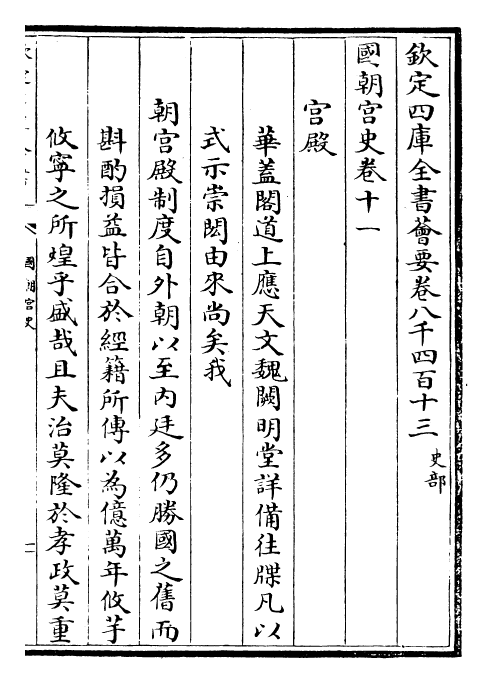 欽定四庫全書薈要卷八千四百十三 史部
國朝宫史卷十一
宫殿
華蓋閣道上應天文魏闕明堂詳備往牒凡以
式示崇閎由來尚矣我
朝宫殿制度自外朝以至内廷多仍勝國之舊而
斟酌損益皆合於經籍所傳以為億萬年攸芋
攸寧之所煌乎盛哉且夫治莫隆於孝政莫重
國朝宫史